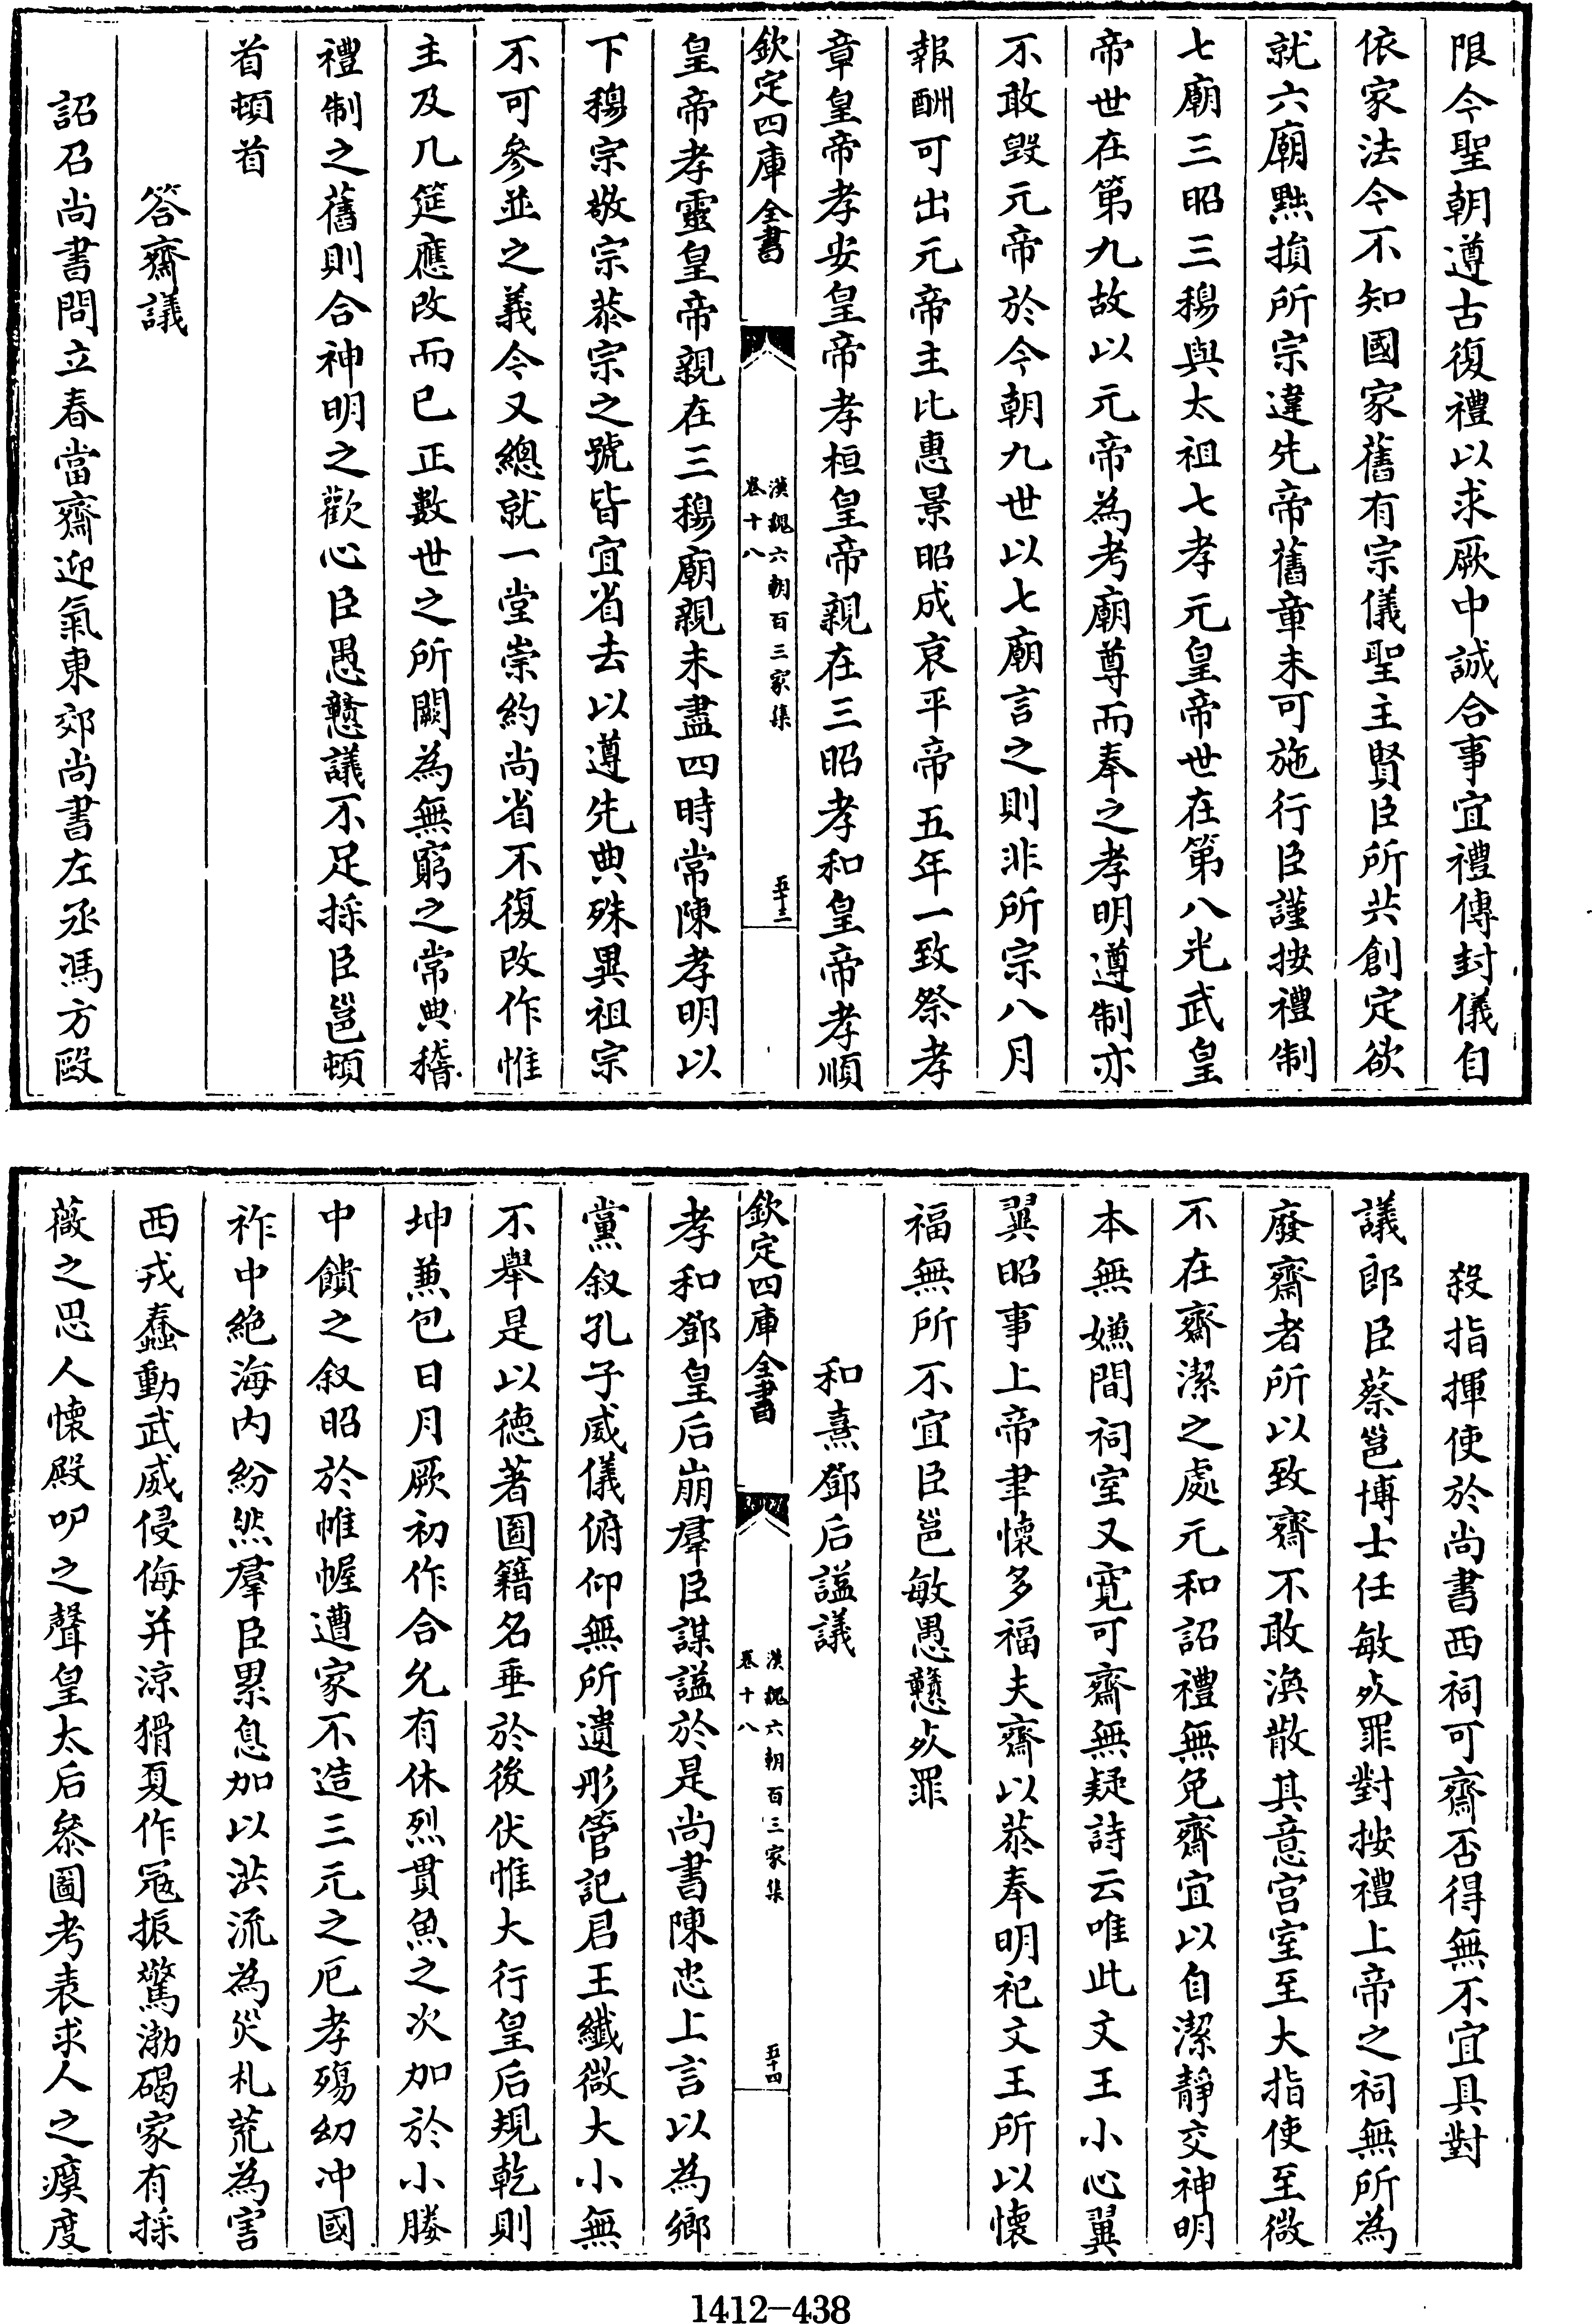 限今聖朝遵古復禮以求厥中誠合事宜禮傳封儀自
依家法今不知國家舊有宗儀聖主賢臣所共創定欲
就六廟㸃損所宗違先帝舊章未可施行臣謹按禮制
七廟三昭三穆與太祖七孝元皇帝世在第八光武皇
帝世在第九故以元帝為考廟尊而奉之孝明遵制亦
不敢毀元帝於今朝九世以七廟言之則非所宗八月
報酬可出元帝主比惠景昭成哀平帝五年一致祭孝
章皇帝孝安皇帝孝桓皇帝親在三昭孝和皇帝孝順
欽定四庫全書
漢魏六朝百三家集
卷十八
五十三
皇帝孝靈皇帝親在三穆廟親未盡四時常陳孝明以
下穆宗敬宗恭宗之號皆宜省去以遵先典殊異祖宗
不可參並之義今又總就一堂崇約尚省不復改作惟
主及几筵應改而已正數世之所闕為無窮之常典稽
禮制之舊則合神明之歡心臣愚戇議不足採臣邕頓
首頓首
答齋議
詔召尚書問立春當齋迎氣東郊尚書左丞馮方毆
殺指揮使於尚書西祠可齋否得無不宜具對
議郎臣蔡邕博士任敏㱙罪對按禮上帝之祠無所為
廢齋者所以致齋不敢渙散其意宮室至大指使至微
不在齋潔之處元和詔禮無免齋宜以自潔靜交神明
本無嫌間祠室又寛可齋無疑詩云唯此文王小心翼
翼昭事上帝聿懷多福夫齋以恭奉明祀文王所以懷
福無所不宜臣邕敏愚戇㱙罪
和熹鄧后諡議
欽定四庫全書
漢魏六朝百三家集
卷十八
五十四
孝和鄧皇后崩羣臣謀諡於是尚書陳忠上言以為鄉
黨叙孔子威儀俯仰無所遺彤管記君王纎微大小無
不舉是以德著圖籍名垂於後伏惟大行皇后規乾則
坤兼包日月厥初作合允有休烈貫魚之次加於小媵
中饋之叙昭於帷幄遭家不造三元之戹孝殤幼冲國
祚中絶海内紛然羣臣累息加以洪流為災札荒為害
西戎蠢動武威侵侮并涼猾夏作宼振驚渤碣家有採
薇之思人懷殿屎之聲皇太后叅圖考表求人之瘼度
1412-438